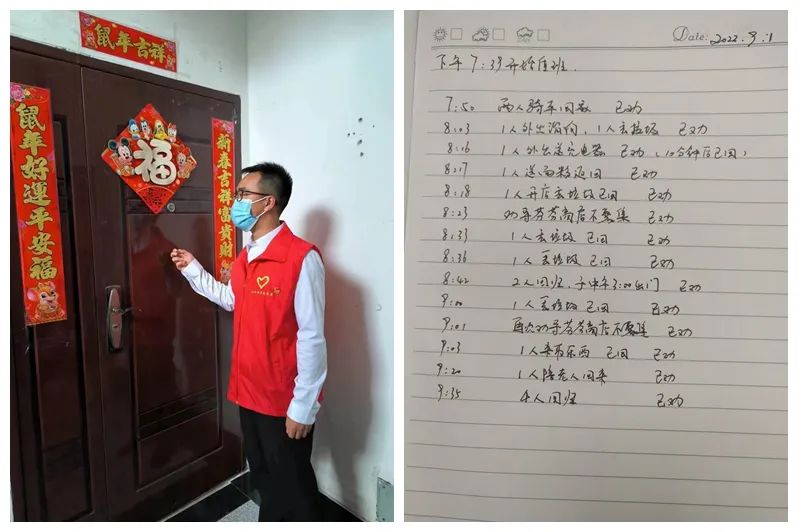 鼠年吉祥
鼠年好運平安福
福
新春吉祥富貴財
Date: 2022.9.1
下午7:39开始值班.
7:50 两人骑车回家 已劝
8:03 1人外出溜狗,1人去垃圾 已劝
8:16 1人外出送充电器 已劝(10分钟后已回)
8:17 1人返回 已劝
8:18 1人开店去垃圾已回 已劝
8:23 劝导芬芬商店不聚集 已劝
8:33 1人去垃圾 已回 已劝
8:36 1人去垃圾 已回 已劝
8:42 2人回归,于中午3:00出门 已劝
9:00 1人去垃圾 已回 已劝
9:01 再次劝导芬芬商店不聚集 已劝
9:03 1人来东西 已回 已劝
9:20 1人陪老人回来 已劝
9:35 4人回归 已劝